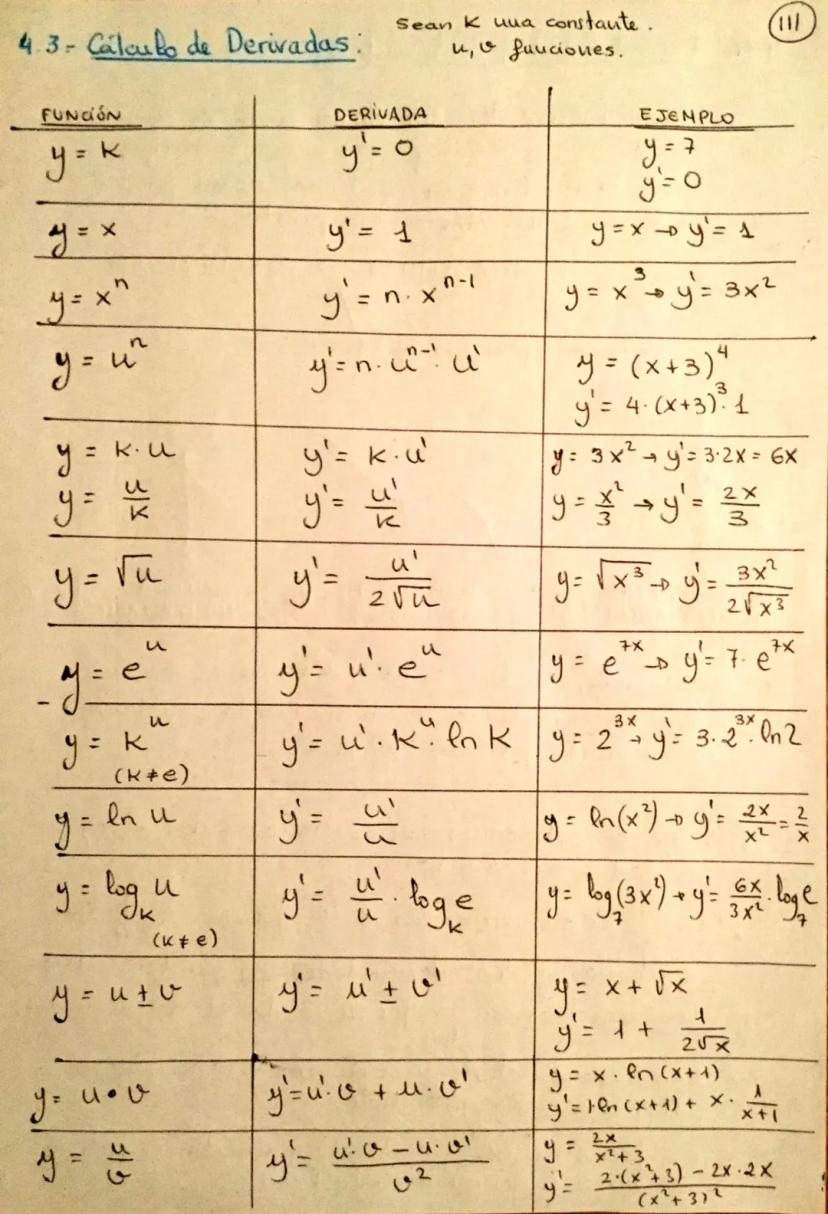 4.3.- Cálculo de Derivadas: Sean K una constante. u, v funciones. 111
FUNCIÓN DERIVADA EJEMPLO
y = K y' = 0 y = 7
y' = 0
y = x y' = 1 y = x → y' = 1
y = xⁿ y' = n · xⁿ⁻¹ y = x³ → y' = 3x²
y = uⁿ y' = n · uⁿ⁻¹ · u' y = (x+3)⁴
y' = 4 · (x+3)³ · 1
y = K · u y' = K · u' y = 3x² → y' = 3·2x = 6x
y = u/K y' = u'/K y = x²/3 → y' = 2x/3
y = √u y' = u'/(2√u) y = √(x³) → y' = 3x²/(2√(x³))
y = e^u y' = u' · e^u y = e^(7x) → y' = 7 · e^(7x)
y = K^u y' = u' · K^u · ln K y = 2^(3x) → y' = 3 · 2^(3x) · ln 2
(K ≠ e)
y = ln u y' = u'/u y = ln(x²) → y' = 2x/x² = 2/x
y = log_K u y' = u'/u · log_K e y = log₇(3x²) → y' = 6x/3x² · log₇ e
(K ≠ e)
y = u ± v y' = u' ± v' y = x + √x
y' = 1 + 1/(2√x)
y = u • v y' = u' · v + u · v' y = x · ln(x+1)
y' = 1·ln(x+1) + x · 1/(x+1)
y = u/v y' = (u'·v − u·v')/v² y = 2x/(x²+3)
y' = (2·(x²+3) − 2x·2x)/(x²+3)²